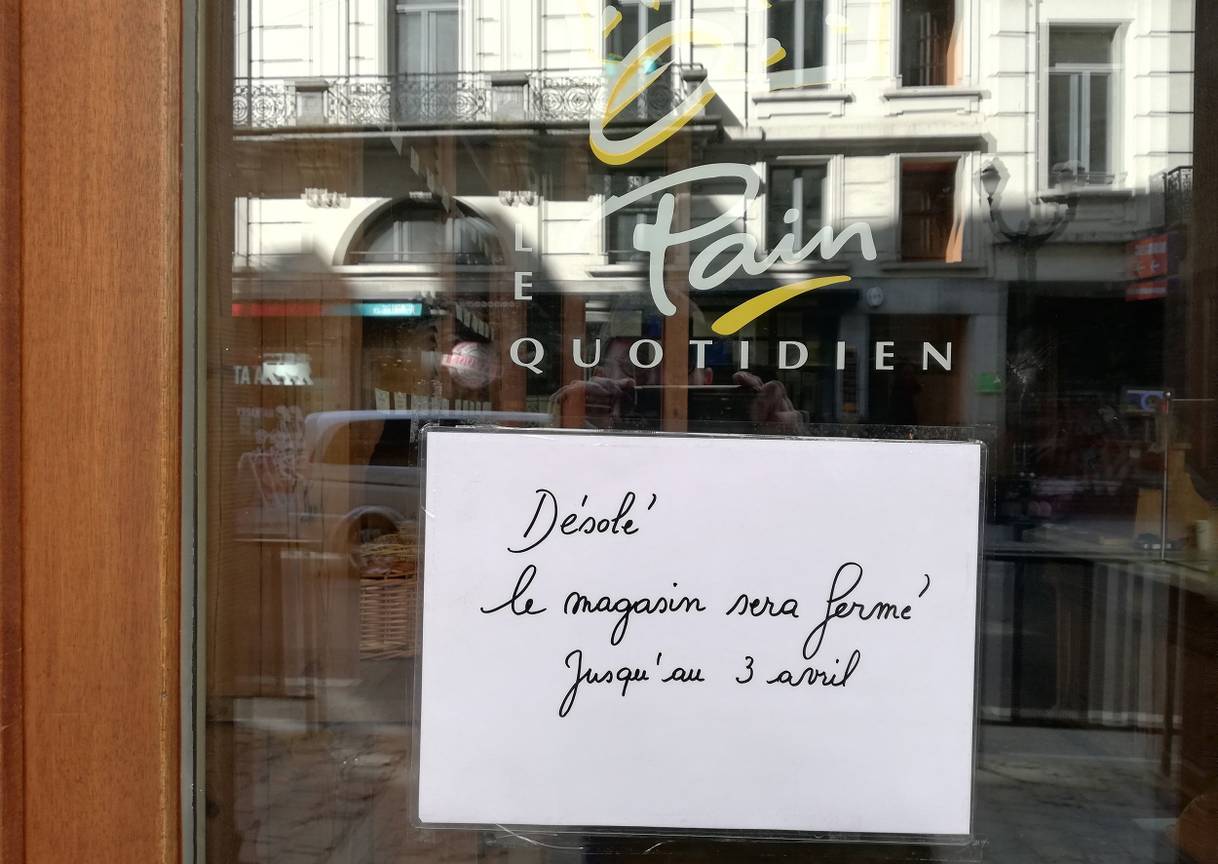 LE
Pain
QUOTIDIEN
Désolé
le magasin sera fermé
Jusqu'au 3 avril